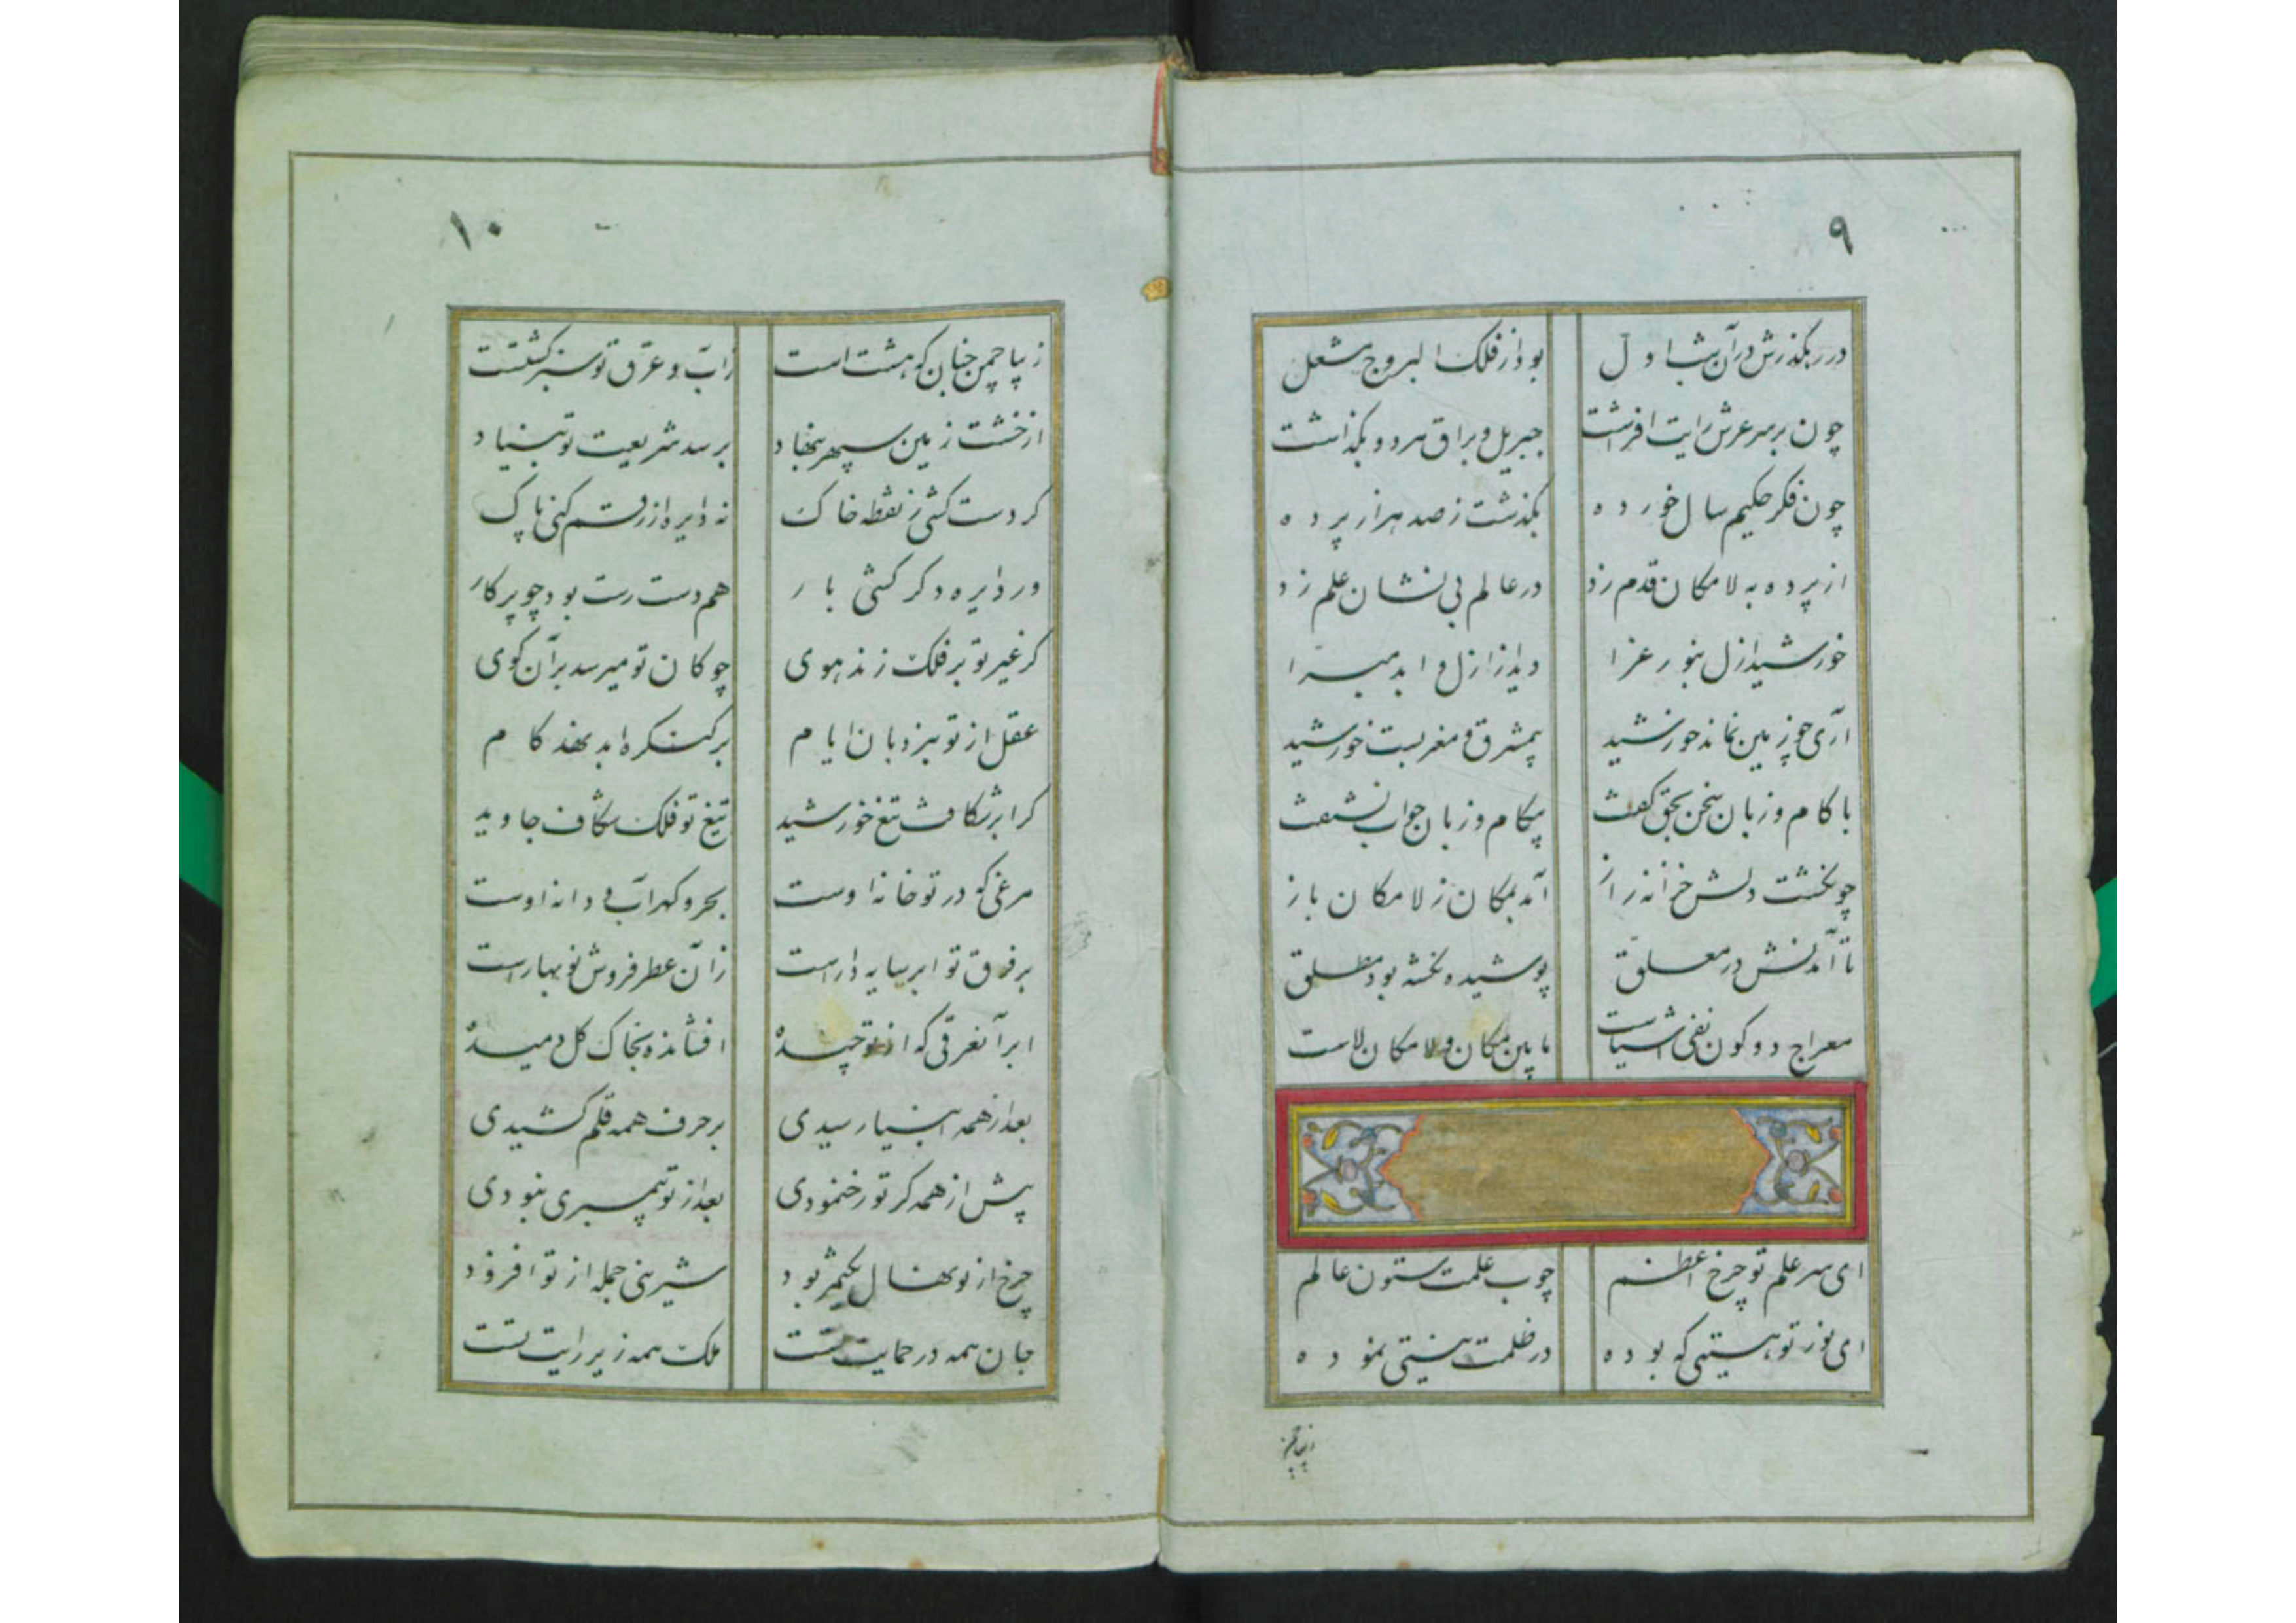 ۹
در رهگذرش در آن شب اول بود از فلک البروج مشعل
چون بر سر عرش رایت افرشت جبریل و براق هر دو بگذاشت
چون فکر حکیم سال خورده بگذشت ز صد هزار پرده
از پرده به لامکان قدم زد در عالم بی نشان علم زد
خورشید ازل بنور عزا دید از ازل و ابد مبرا
آری چو زمین نماند خورشید بی مشرق و مغربست خورشید
با کام و زبان سخن بحق گفت بیکام و زبان جواب بشنفت
چو گشت دلش خزانه راز آمد بمکان ز لامکان باز
تا آمدنش در معلق پوشیده نگشته بود مطلق
معراج دو کون نفی اشیاست ما بین مکان و لامکان لاست
ای سر علم تو چرخ اعظم چوب علمت ستون عالم
ای نور تو هستیی که بوده در ظلمت نیستی نموده
۱۰
زیبا چمن جنان که هشت است ز آب و عرق تو سبز گشتست
از خشت زمین سپهر بنهاد بر سد شریعت تو بنیاد
کر دست کشی ز نقطه خاک نه دایره از رقم کنی پاک
ور دایره دگر کشی بار هم دست رست بود چو پرکار
کر غیر تو بر فلک زند هوی چوکان تو میرسد بر آن کوی
عقل از تو بنردبان ایام بر کنکره ابد نهد کام
کر ابر شکافت تیغ خورشید تیغ تو فلک شکاف جاوید
مرغی که در تو خانه اوست بحر و کهر آب و دانه اوست
بر فرق تو ابر سایه دارست زآن عطر فروش نوبهارست
ابر آنعرقی که از تو چیده افشانده بخاک کل دمیده
بعد از همه انبیا رسیدی بر حرف همه قلم کشیدی
پیش از همه کر تو رخ نمودی بعد از تو پیمبری نبودی
چرخ از تو نهال یکثمر بود شیرینی جمله از تو افزود
جان همه در حمایت تست ملک همه زیر رایت تست